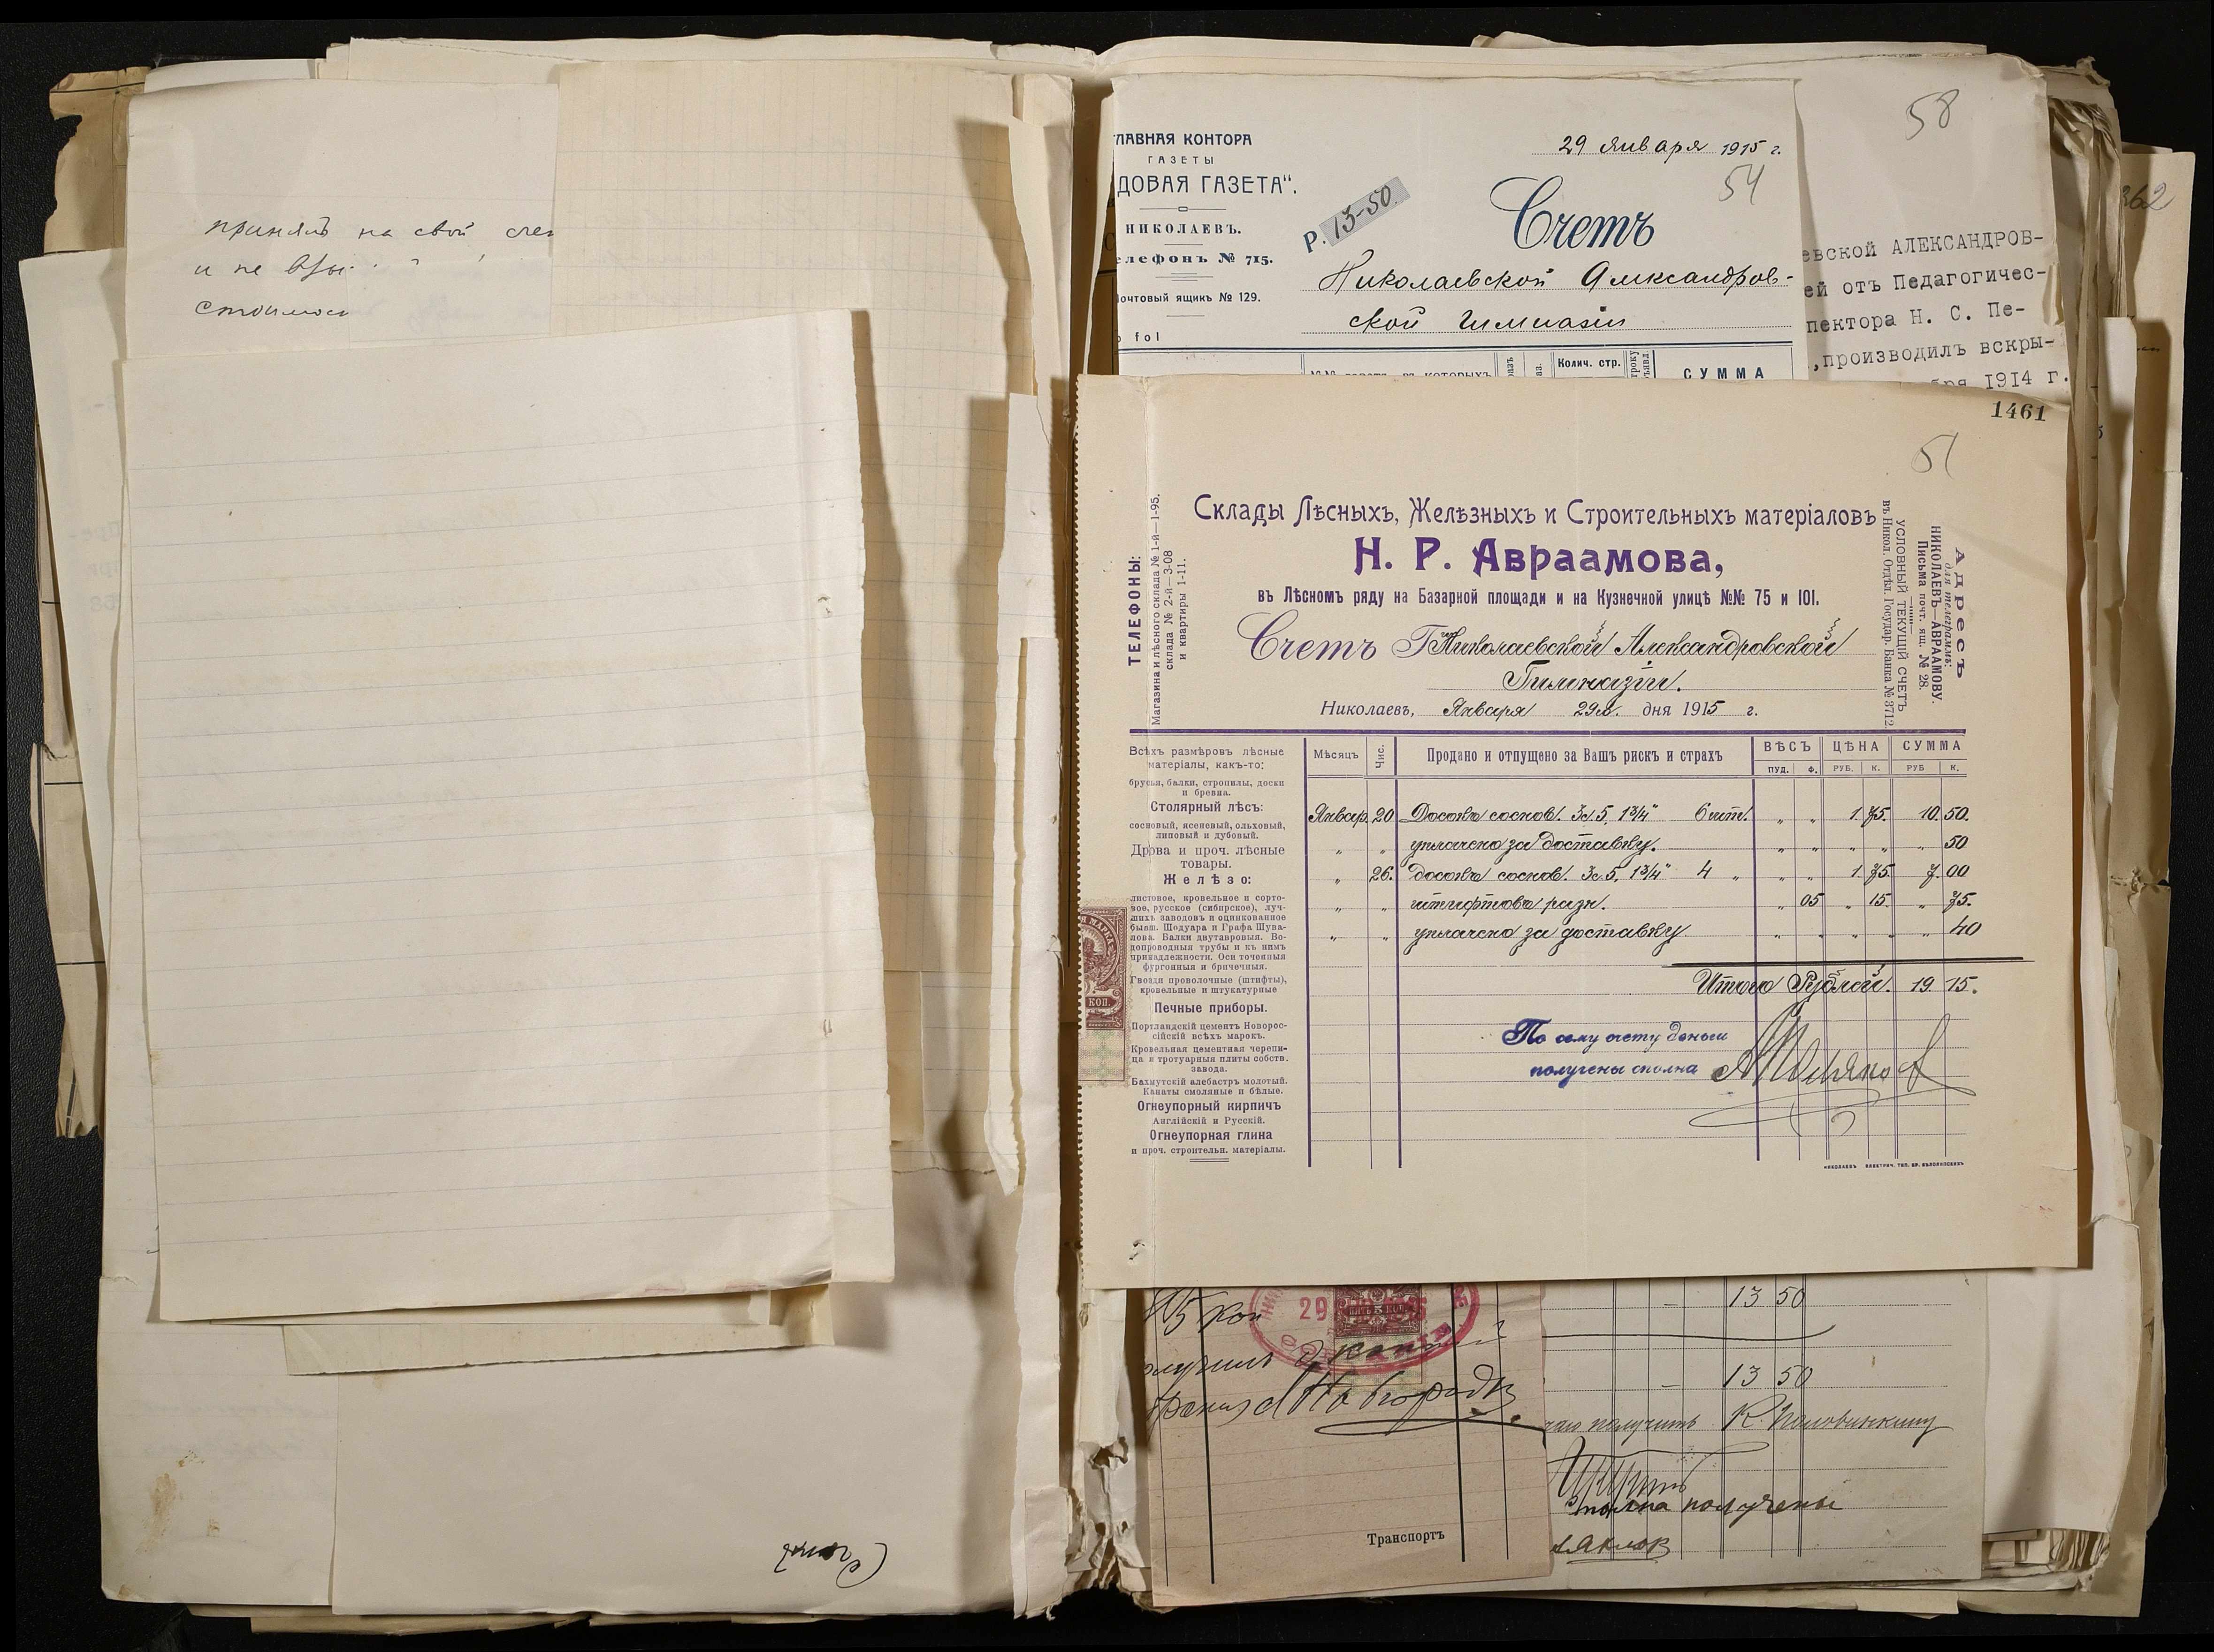 принялъ на свой счет
и не
58
362
ЛАВНАЯ КОНТОРА
ГАЗЕТЫ
ДОВАЯ ГАЗЕТА".
НИКОЛАЕВЪ.
елефонъ № 715.
очтовый ящикъ № 129.
fol
29 Января 1915 г.
54
Р. 13-50.
Счетъ
Николаевской Александров-
ской Гимназіи
Колич. стр.
СУММА
евской АЛЕКСАНДРОВ-
ей отъ Педагогичес-
пектора Н. С. Пе-
,производилъ вскры-
бря 1914 г.
1461
51
Склады Лѣсныхъ, Желѣзныхъ и Строительныхъ матеріаловъ
Н. Р. Авраамова,
въ Лѣсномъ ряду на Базарной площади и на Кузнечной улицѣ №№ 75 и 101.
ТЕЛЕФОНЫ:
Магазина и лѣсного склада № 1-й—1-95.
склада № 2-й—3-08
и квартиры 1-11.
Адресъ
для телеграммъ:
НИКОЛАЕВЪ—АВРААМОВУ.
Письма почт. ящ. № 28.
УСЛОВНЫЙ ТЕКУЩІЙ СЧЕТЪ
въ Никол. Отдѣл. Государ. Банка № 3712.
Счетъ Г Николаевской Александровской
Гимназіи.
Николаевъ, Января 29го. дня 1915 г.
Мѣсяцъ Чис. Продано и отпущено за Вашъ рискъ и страхъ ВѢСЪ ЦѢНА СУММА
ПУД. Ф. РУБ. К. РУБ К.
Январ. 20 Досокъ соснов. 3с.5. 1¾" 6 шт. " " 1. 75. 10. 50.
" " уплачено за доставку. " " " " " 50
" 26. досокъ соснов. 3с.5. 1¾" 4 " " " 1. 75 7. 00
" " штифтовъ разн. " 05 " 15. " 75.
" " уплачено за доставку. " " " " " 40
Итого Рублей. 19. 15.
По сему счету деньги
получены сполна
Всѣхъ размѣровъ лѣсные
матеріалы, какъ-то:
брусья, балки, стропилы, доски
и бревна.
Столярный лѣсъ:
сосновый, ясеневый, ольховый,
липовый и дубовый.
Дрова и проч. лѣсные
товары.
Желѣзо:
листовое, кровельное и сорто-
вое, русское (сибирское), луч-
шихъ заводовъ и оцинкованное
бывш. Шодуара и Графа Шува-
лова. Балки двутавровыя. Во-
допроводныя трубы и къ нимъ
принадлежности. Оси точеныя
фургонныя и бричечныя.
Гвозди проволочные (штифты),
кровельные и штукатурные
Печные приборы.
Портландскій цементъ Новорос-
сійскій всѣхъ марокъ.
Кровельная цементная черепи-
ца и тротуарныя плиты собств.
завода.
Бахмутскій алебастръ молотый.
Канаты смоляные и бѣлые.
Огнеупорный кирпичъ
Англійскій и Русскій.
Огнеупорная глина
и проч. строительн. матеріалы.
КОП.
13 50
13 50
15 коп
29
олучилъ
получить К. Половинкину
сполна получены
Транспортъ